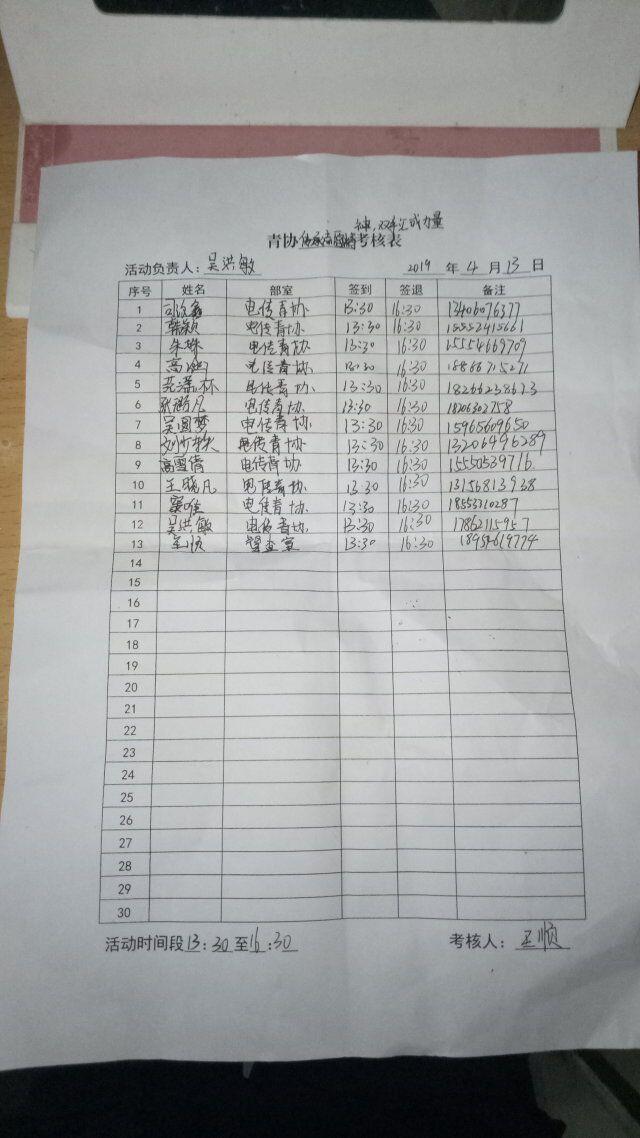 双手汇成力量
青协 考核表
活动负责人：吴洪敏 2019 年 4 月 13 日
序号 姓名 部室 签到 签退 备注
1 电传青协 13:30 16:30 13406076377
2 电传青协 13:30 16:30 15552415661
3 朱姝 电传青协 13:30 16:30 15554669709
4 电传青协 13:30 16:30 18886715271
5 电传青协 13:30 16:30 18266238673
6 电传青协 13:30 16:30 18206302758
7 吴圆梦 电传青协 13:30 16:30 15965609650
8 电传青协 13:30 16:30 13206496289
9 高雪倩 电传青协 13:30 16:30 15550539716
10 王晓凡 电传青协 13:30 16:30 13156813938
11 电传青协 13:30 16:30 18853310287
12 吴洪敏 电传青协 13:30 16:30 17862115957
13 王顺 督查室 13:30 16:30
14
15
16
17
18
19
20
21
22
23
24
25
26
27
28
29
30
活动时间段13:30至16:30 考核人：王顺